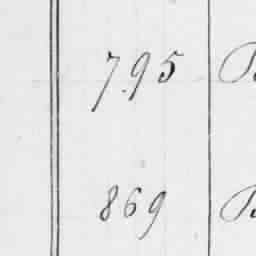 795
869